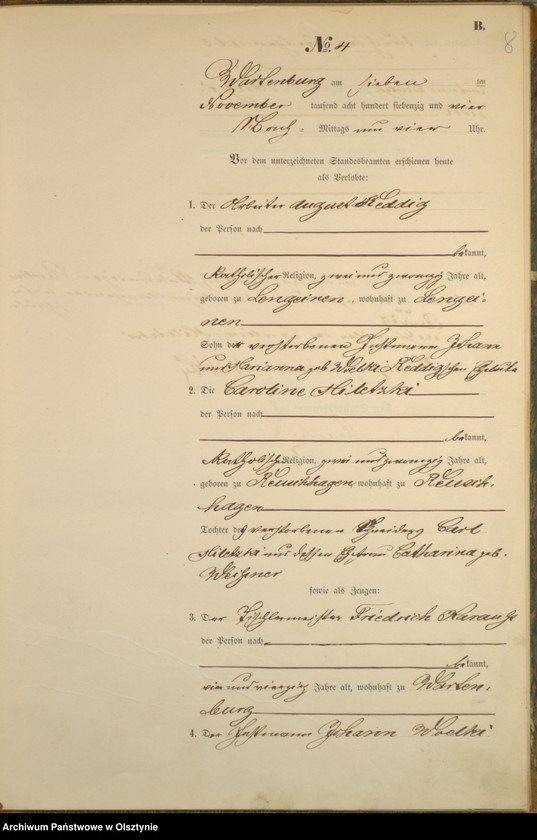 B.
8
No. 4
Wartenburg am sieben ten
November tausend acht hundert siebenzig und vier
Nach- Mittags um vier Uhr.
Vor dem unterzeichneten Standesbeamten erschienen heute
als Verlobte:
1. Der Arbeiter August Keddig
der Person nach
bekannt,
katholischer Religion, zwei und zwanzig Jahre alt,
geboren zu Lengainen, wohnhaft zu Lengai-
nen
Sohn der verstorbenen Johann
und Marianna geb Keddig'schen Eheleute
2. Die Caroline
der Person nach
bekannt,
katholischer Religion, zwei und zwanzig Jahre alt,
geboren zu Reuschhagen, wohnhaft zu Reusch-
hagen
Tochter des verstorbenen Schneiders Carl
und dessen Ehefrau Catharina geb.
sowie als Zeugen:
3. Der Tischlermeister Friedrich
der Person nach
bekannt,
ein und vierzig Jahre alt, wohnhaft zu Warten-
burg
4. Der Johann Woelki
Archiwum Państwowe w Olsztynie